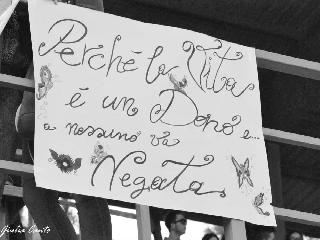 Perché la Vita
è un Dono e...
a nessuno va
Negata.
Giusiva Canto